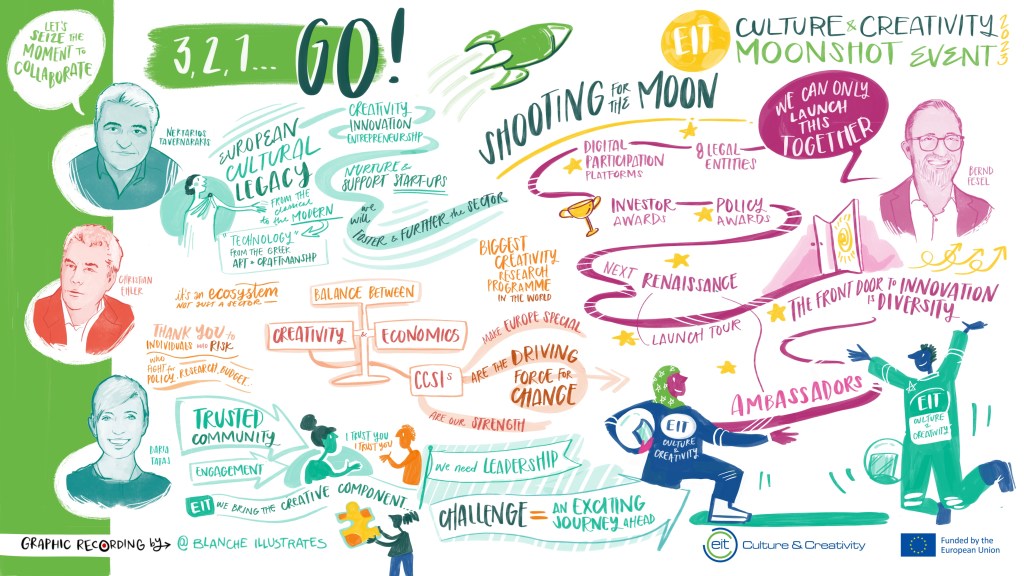 LET'S
SEIZE THE
MOMENT TO
COLLABORATE
3, 2, 1... GO!
EIT
CULTURE & CREATIVITY
MOONSHOT EVENT
2023
NEKTARIOS
TAVERNARAKIS
EUROPEAN
CULTURAL
LEGACY
FROM THE
classical
to the MODERN
"TECHNOLOGY"
FROM THE GREEK
ART + CRAFTMANSHIP
CREATIVITY
INNOVATION
ENTREPRENEURSHIP
NURTURE &
SUPPORT START-UPS
we
will
FOSTER & FURTHER the SECTOR
SHOOTING FOR THE MOON
DIGITAL
PARTICIPATION
PLATFORMS
8 LEGAL
ENTITIES
INVESTOR
AWARDS
POLICY
AWARDS
NEXT RENAISSANCE
LAUNCH TOUR
AMBASSADORS
THE FRONT DOOR TO INNOVATION
is DIVERSITY
WE CAN ONLY
LAUNCH
THIS
TOGETHER
BERND
FESEL
CHRISTIAN
EHLER
it's an ecosystem
NOT JUST A SECTOR
THANK YOU to
INDIVIDUALS who RISK
WHO
FIGHT for
POLICY, RESEARCH, BUDGET...
BALANCE BETWEEN
CREATIVITY & ECONOMICS
BIGGEST
CREATIVITY
RESEARCH
PROGRAMME
IN THE WORLD
CCSIs
MAKE EUROPE SPECIAL
ARE THE DRIVING
FORCE FOR
CHANGE
ARE OUR STRENGTH
DARIA
TATAJ
TRUSTED
COMMUNITY
ENGAGEMENT
I TRUST YOU
I TRUST YOU
EIT WE BRING THE CREATIVE COMPONENT...
we need LEADERSHIP
CHALLENGE = AN EXCITING
JOURNEY AHEAD
EIT
CULTURE
&
CREATIVITY
EIT
CULTURE
&
CREATIVITY
GRAPHIC RECORDING by → @ BLANCHE ILLUSTRATES
eit Culture & Creativity
Funded by the
European Union